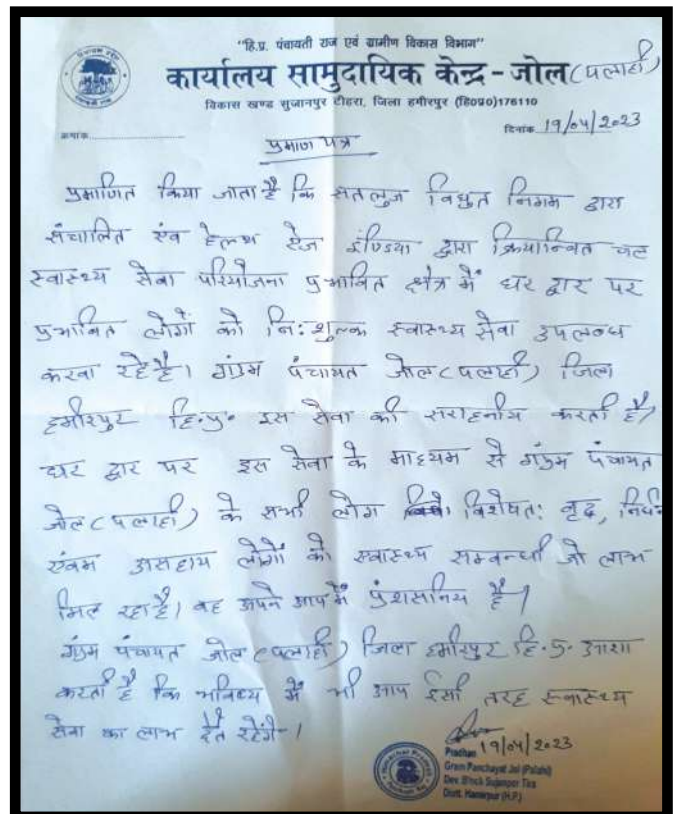 "हि.प्र. पंचायती राज एवं ग्रामीण विकास विभाग"
कार्यालय सामुदायिक केन्द्र - जोल (पलाही)
विकास खण्ड सुजानपुर टीहरा, जिला हमीरपुर (हि0प्र0) 176110
क्रमांक.................... दिनांक 19/04/2023
प्रमाण पत्र
प्रमाणित किया जाता है कि सतलुज विधुत निगम द्वारा
संचालित एंव हेल्थ ऐज इण्डिया द्वारा क्रियान्वित चल
स्वास्थ्य सेवा परियोजना प्रभावित क्षेत्र में घर द्वार पर
प्रभावित लोगों को नि:शुल्क स्वास्थ्य सेवा उपलब्ध
करवा रहे है। ग्राम पंचायत जोल (पलाही) जिला
हमीरपुर हि.प्र. इस सेवा की सराहनीय करती है।
घर द्वार पर इस सेवा के माध्यम से ग्राम पंचायत
जोल (पलाही) के सभी लोग विशेषत: वृद्ध, निर्धन
एंवम असहाय लोगों को स्वास्थ्य सम्बन्धी जो लाभ
मिल रहा है। वह अपने आप में प्रंशसनिय है।
ग्राम पंचायत जोल (पलाही) जिला हमीरपुर हि.प्र. आशा
करती है कि भविष्य में भी आप ईसी तरह स्वास्थ्य
सेवा का लाभ देते रहेंगे।
19/04/2023
Pradhan
Gram Panchayat Jol (Palahi)
Dev. Block Sujanpur Tira
Distt. Hamirpur (H.P.)